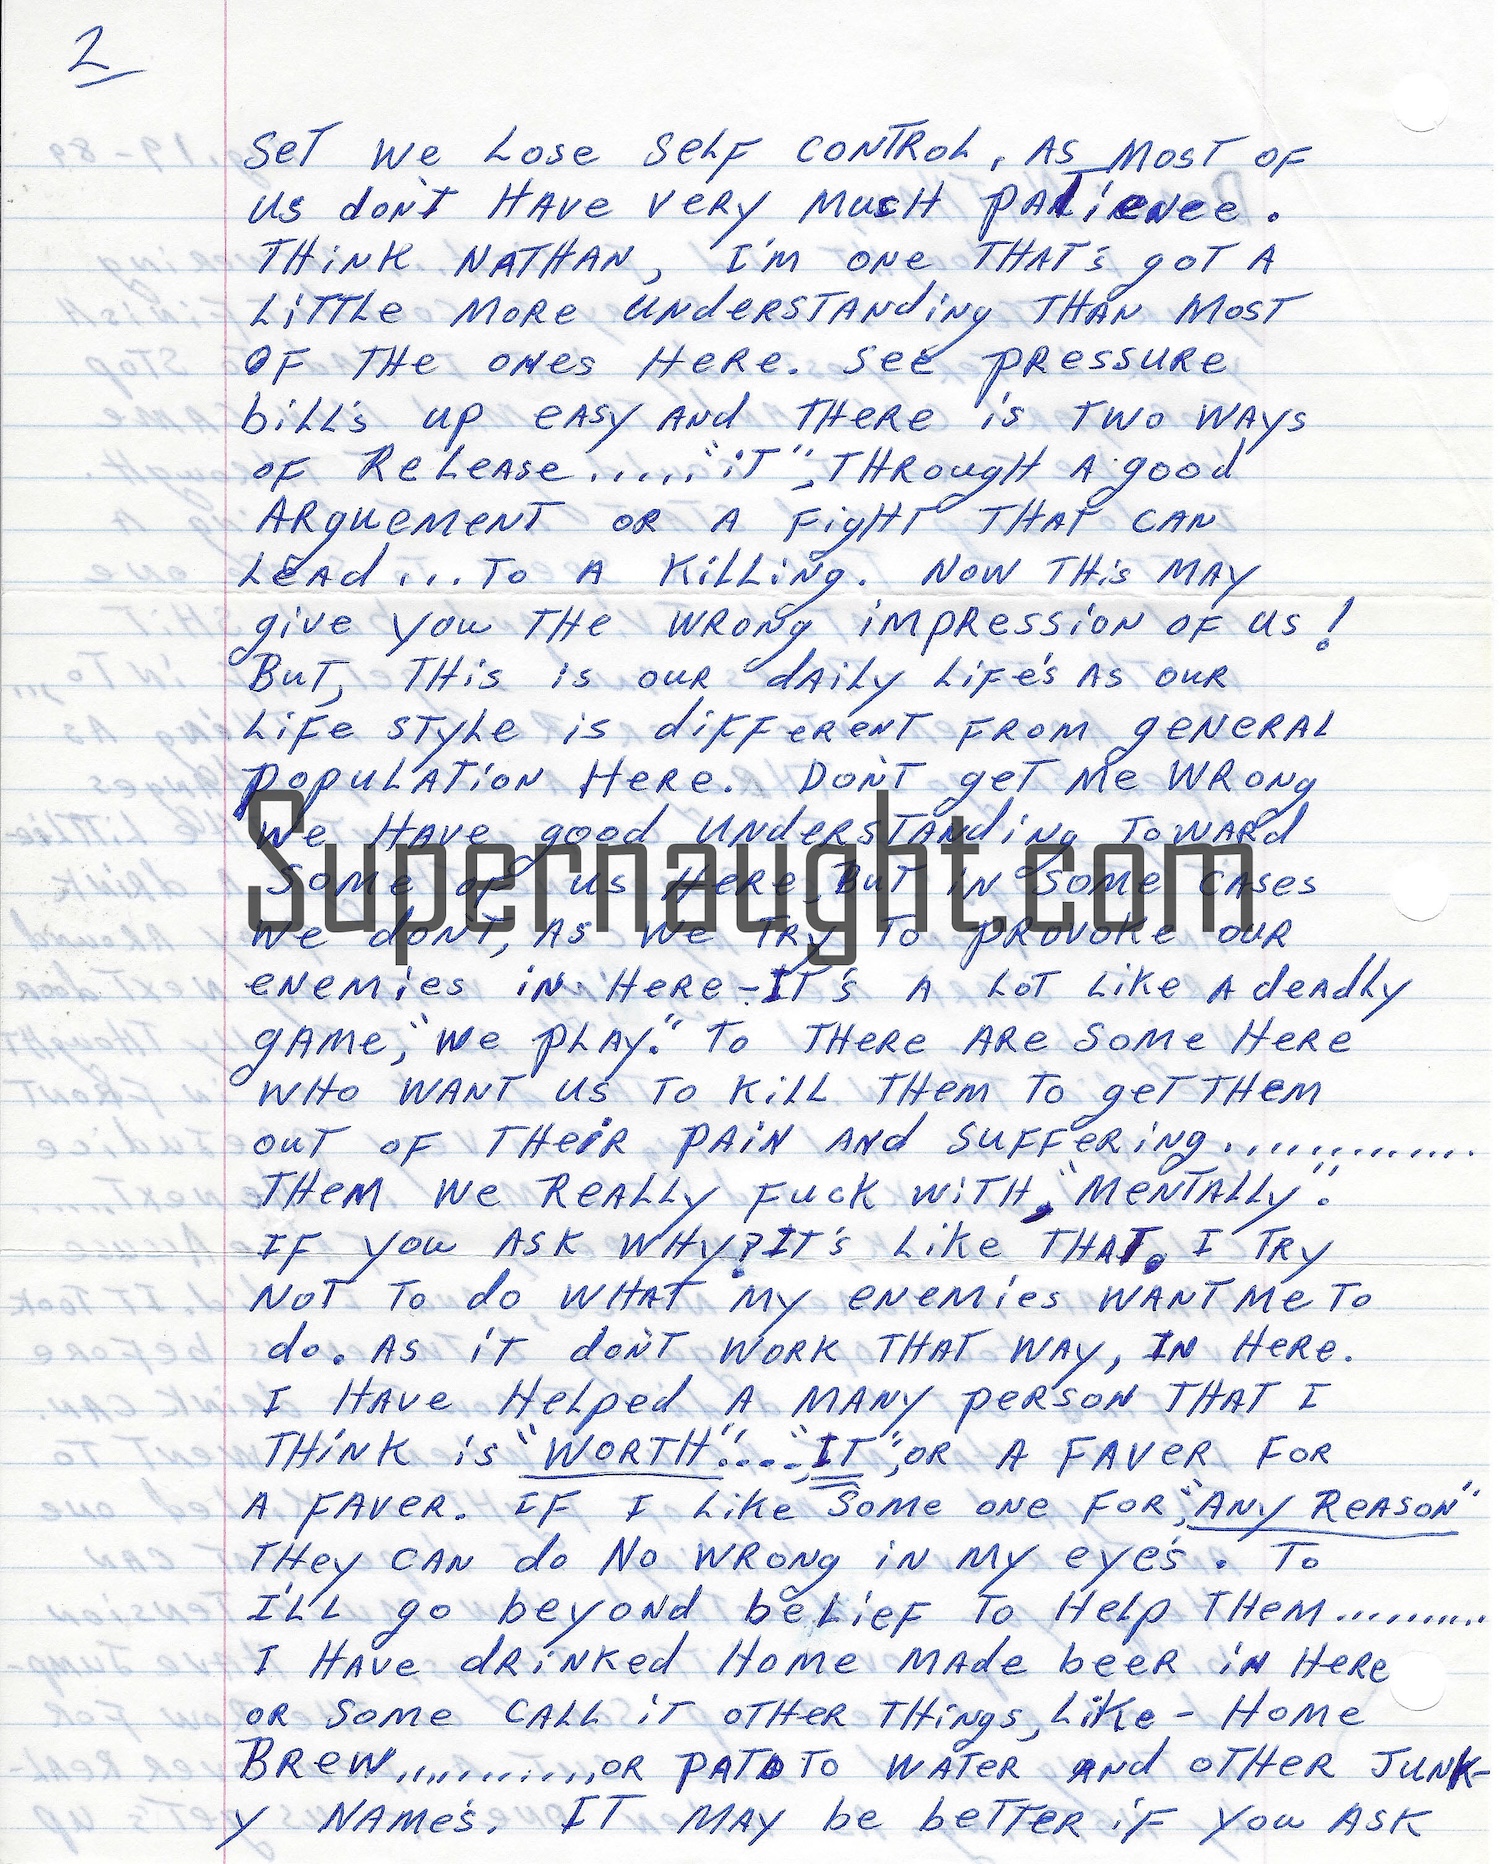 2
SET WE LOSE SELF CONTROL, AS MOST OF
US DON'T HAVE VERY MUCH PATIENCE.
THINK NATHAN, I'M ONE THAT'S GOT A
LITTLE MORE UNDERSTANDING THAN MOST
OF THE ONES HERE. SEE PRESSURE
BILL'S UP EASY AND THERE IS TWO WAYS
OF RELEASE....."IT", THROUGH A GOOD
ARGUEMENT OR A FIGHT THAT CAN
LEAD....TO A KILLING. NOW THIS MAY
GIVE YOU THE WRONG IMPRESSION OF US!
BUT, THIS IS OUR DAILY LIFE'S AS OUR
LIFE STYLE IS DIFFERENT FROM GENERAL
POPULATION HERE. DON'T GET ME WRONG
WE HAVE GOOD UNDERSTANDING TOWARD
SOME OF US HERE, BUT IN SOME CASES
WE DON'T, AS WE TRY TO PROVOKE OUR
ENEMIES IN HERE - IT'S A LOT LIKE A DEADLY
GAME, "WE PLAY." TO THERE ARE SOME HERE
WHO WANT US TO KILL THEM TO GET THEM
OUT OF THEIR PAIN AND SUFFERING.............
THEM WE REALLY FUCK WITH, "MENTALLY".
IF YOU ASK WHY? IT'S LIKE THAT. I TRY
NOT TO DO WHAT MY ENEMIES WANT ME TO
DO. AS IT DON'T WORK THAT WAY, IN HERE.
I HAVE HELPED A MANY PERSON THAT I
THINK IS "WORTH"...."IT", OR A FAVER FOR
A FAVER. IF I LIKE SOME ONE FOR, "ANY REASON"
THEY CAN DO NO WRONG IN MY EYE'S. TO
I'LL GO BEYOND BELIEF TO HELP THEM..........
I HAVE DRINKED HOME MADE BEER IN HERE
OR SOME CALL IT OTHER THINGS, LIKE - HOME
BREW............OR PATOTO WATER AND OTHER JUNK-
Y NAME'S. IT MAY BE BETTER IF YOU ASK
Supernaught.com